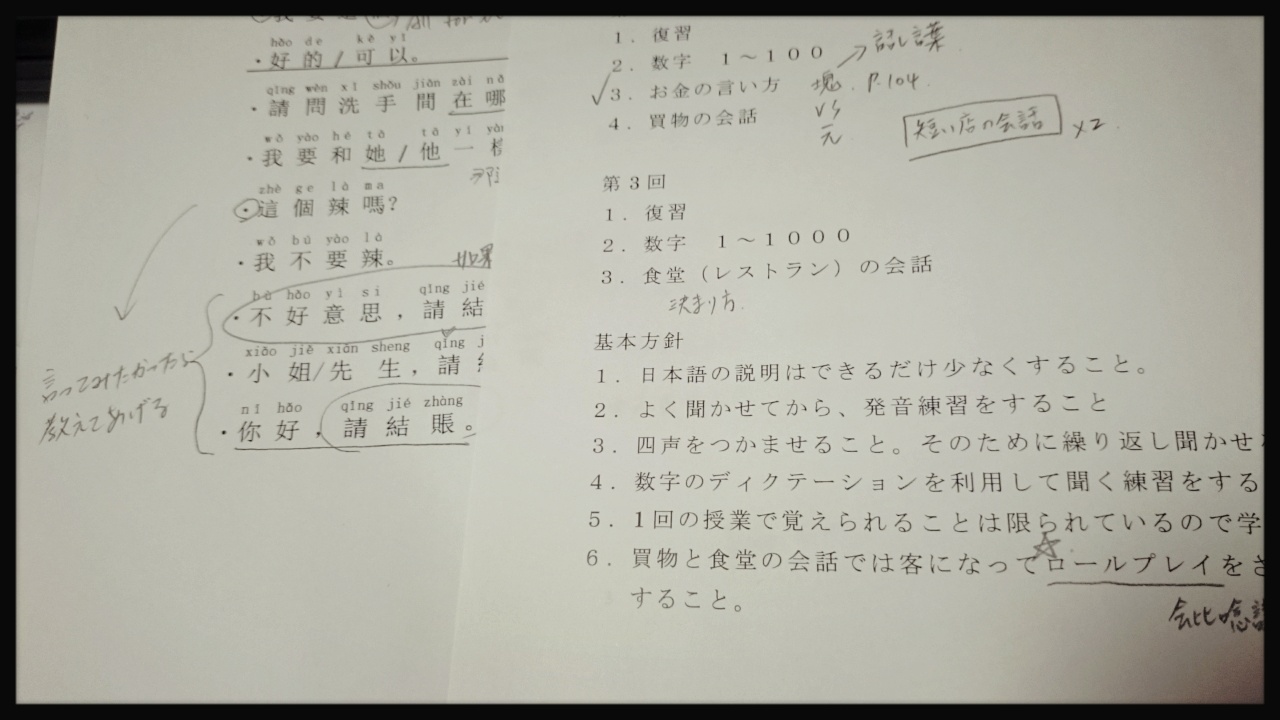 hǎo de kě yǐ
・好的/可以。
qǐng wèn xǐ shǒu jiān zài nǎ
・請問洗手間在哪
wǒ yào hé tā tā yí yàn
・我要和她/他一樣
zhè ge là ma
・這個辣嗎?
wǒ bú yào là
・我不要辣。
如果
bù hǎo yì si qǐng jié
・不好意思,請結
xiǎo jiě xiān sheng qǐng j
・小姐/先生,請
nǐ hǎo qǐng jié zhàng
・你好,請結賬。
言ってみたかったら
教えてあげる
1. 復習
2. 数字 1～100
3. お金の言い方
4. 買物の会話
話し言葉
塊. P.104.
vs
元.
短い店の会話 x2
第3回
1. 復習
2. 数字 1～1000
3. 食堂(レストラン)の会話
決まり方.
基本方針
1. 日本語の説明はできるだけ少なくすること。
2. よく聞かせてから、発音練習をすること
3. 四声をつかませること。そのために繰り返し聞かせ
4. 数字のディクテーションを利用して聞く練習をする
5. 1回の授業で覚えられることは限られているので学
6. 買物と食堂の会話では客になってロールプレイをさ
すること。
会比唸